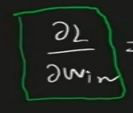 ∂L
∂Win =